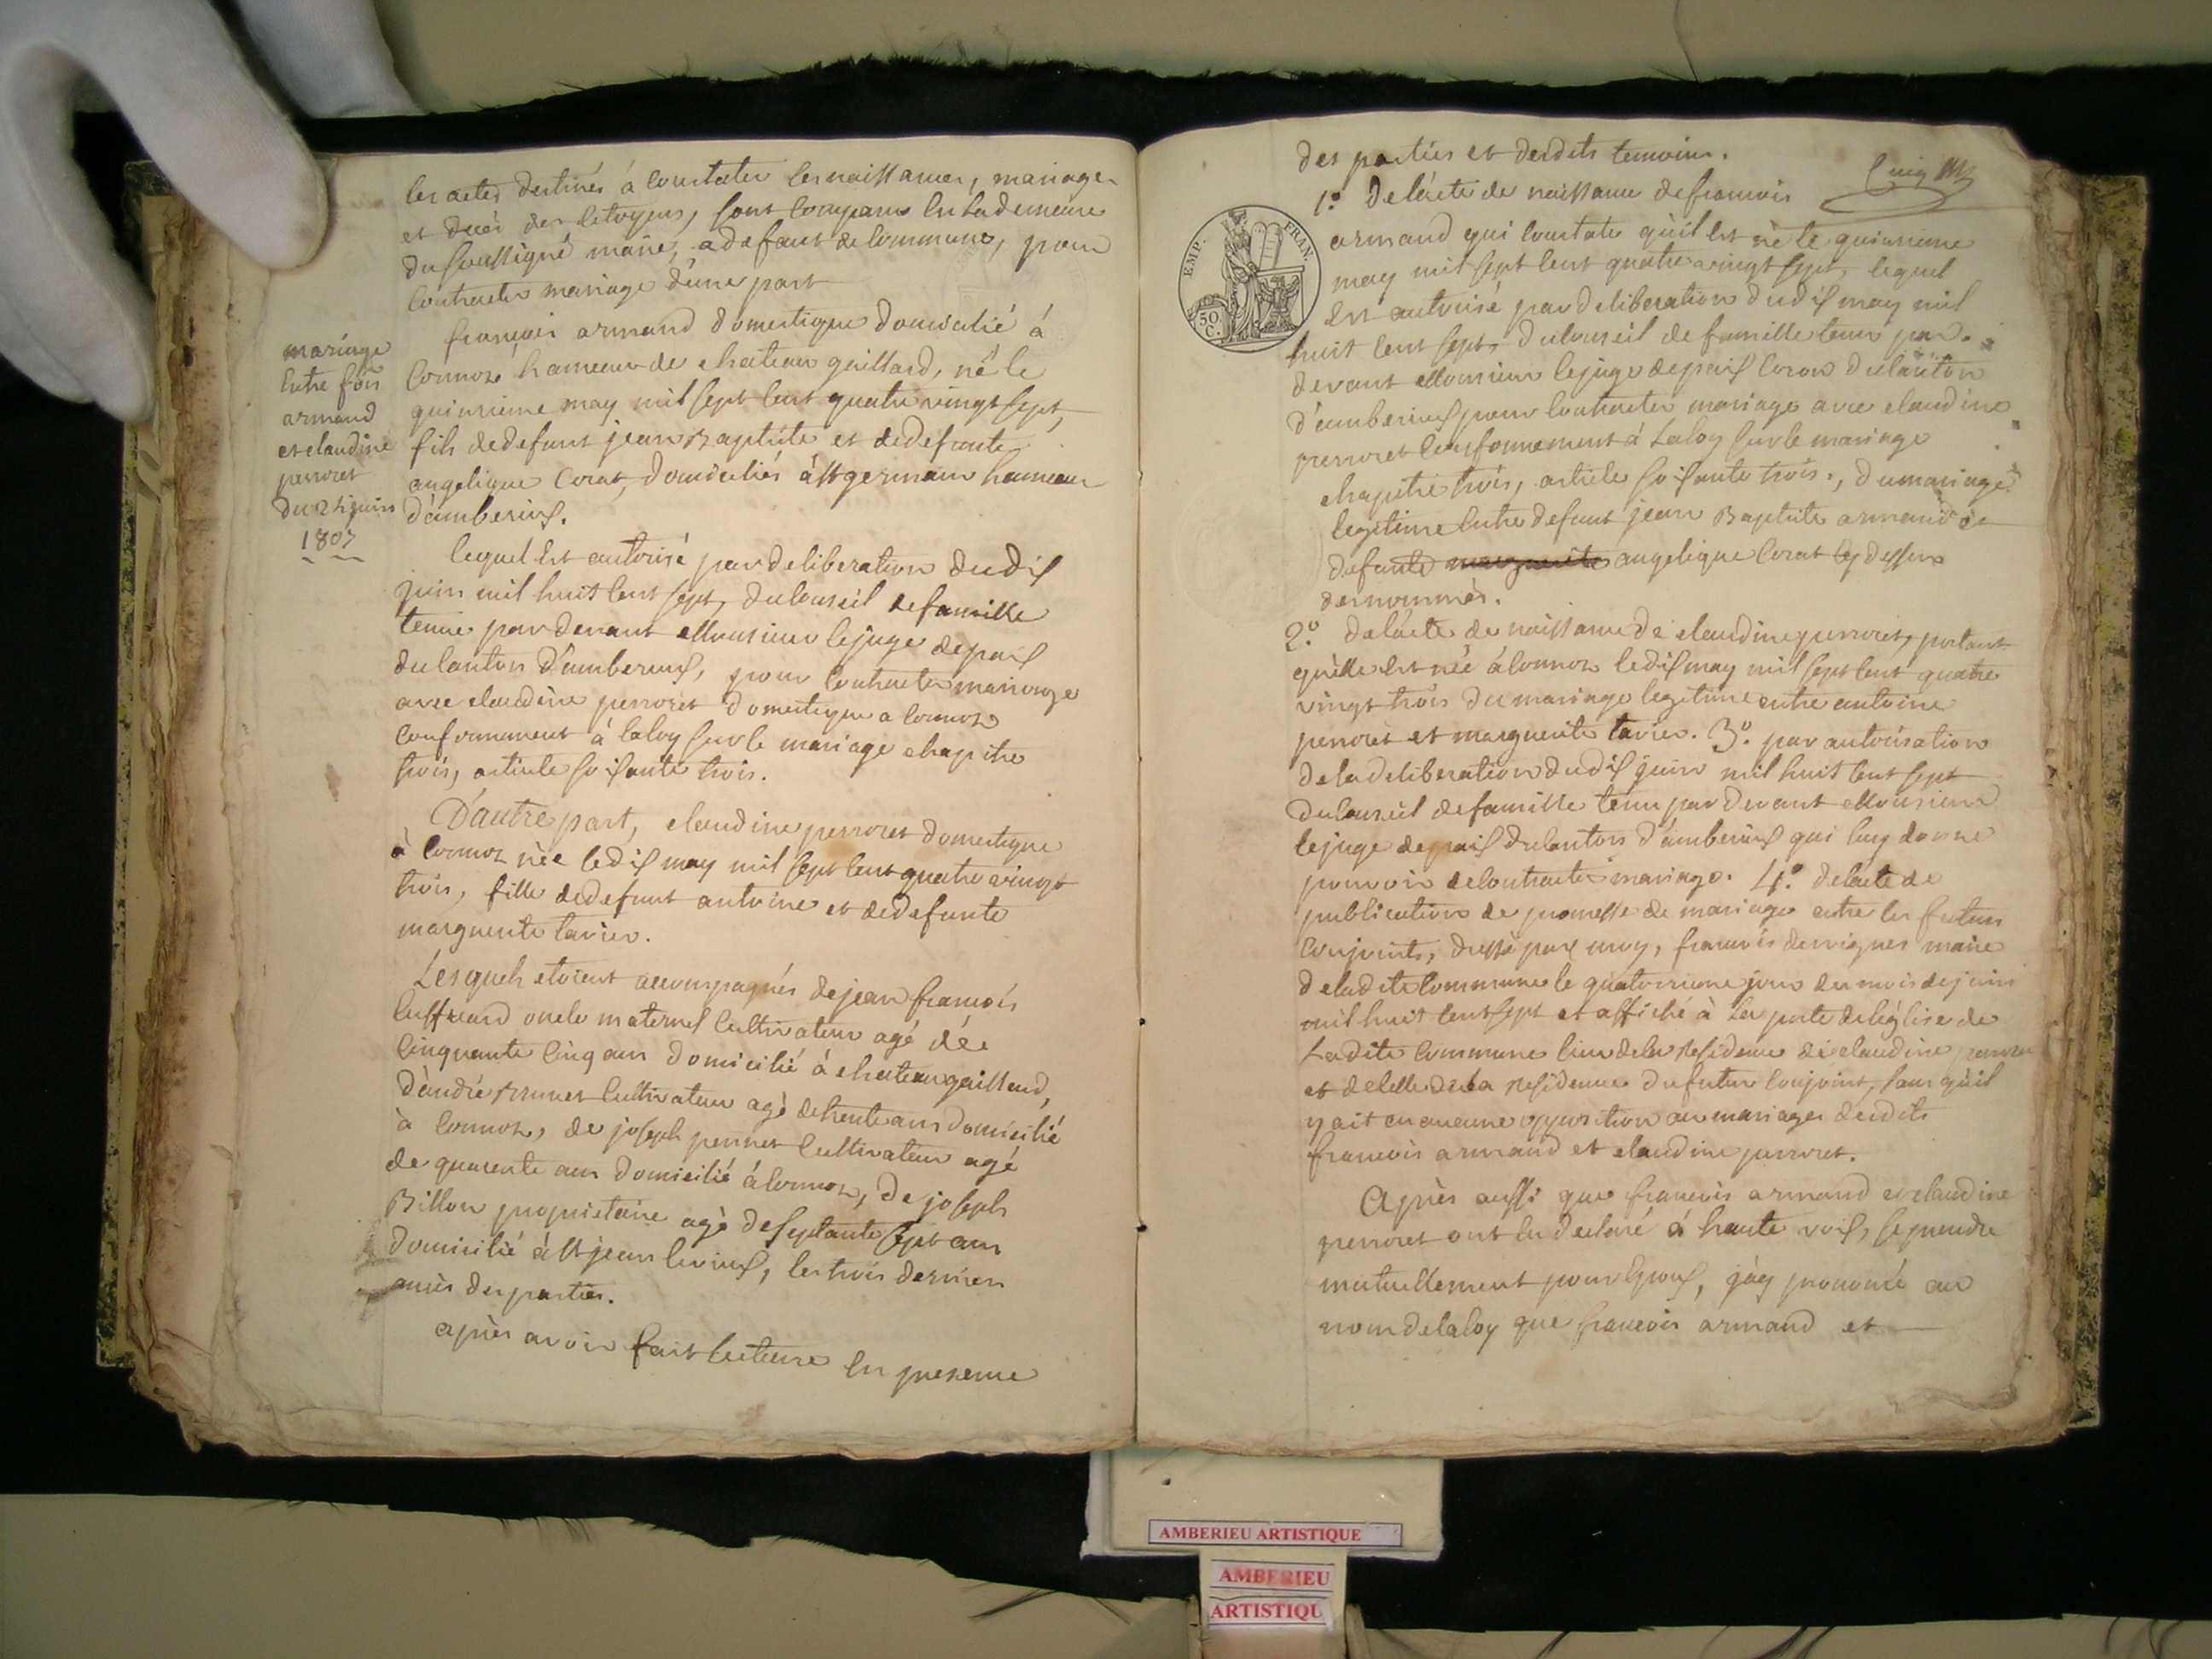 les actes destinés à constater les naissances, mariages
et decés des citoyens, sont comparus en la demeure
du soussigné maire, a defaut de commune, pour
contracter mariage d'une part
mariage
entre fois
armand
et claudine
perroret
du 24 juin
1807
françois armand domestique domicilié à
Cormoz hameau de chateau gaillard, né le
quinzieme may mil sept cent quatre vingt sept,
fils de defunt jean Baptiste et de defunte
angelique Corat, domiciliés à st germain hameau
d'amberieux.
lequel est autorisé par deliberation du dix
juin mil huit cent sept, du conseil de famille
tenue par devant Monsieur le juge de paix
du canton d'amberieux, pour contracter mariage
avec claudine perroret domestique a Cormoz
conformement à la loy sur le mariage chapitre
trois, article soixante trois.
D'autre part, claudine perroret domestique
à Cormoz née le dix may mil sept cent quatre vingt
trois, fille de defunt antoine et de defunte
marguerite tavier.
Lesquels etoient accompagnés de jean françois
oncle maternel cultivateur agé de
cinquante cinq ans domicilié à chateau gaillard,
d'andré cultivateur agé de trente ans domicilié
à Cormoz, de joseph cultivateur agé
de quarente ans domicilié à Cormoz, de joseph
Billon proprietaire agé de septante sept ans
domicilié à st jean le vieux, les trois derniers
amis des parties.
après avoir fait lecture en presence
des parties et desdits temoins.
1.° De l'acte de naissance de francois
EMP. FRAN.
50 C.
armand qui constate qu'il est né le quinzieme
may mil sept cent quatre vingt sept, lequel
est autorisé par deliberation du dix may mil
huit cent sept, du conseil de famille tenu par
devant Monsieur le juge de paix du canton
d'amberieux pour contracter mariage avec claudine
perroret conformement à La loy sur le mariage
chapitre trois, article soixante trois., du mariage
legitime entre defunt jean Baptiste armand et
defunte marguerite angelique Corat cy dessus
denommés.
2.° de l'acte de naissance de claudine perroret, portant
qu'elle est née à Cormoz le dix may mil sept cent quatre
vingt trois du mariage legitime entre antoine
perroret et marguerite tavier. 3.° par autorisation
de la deliberation du dix juin mil huit cent sept
du conseil de famille tenu par devant Monsieur
le juge de paix du canton d'amberieux qui luy donne
pouvoir de contracter mariage. 4.° de l'acte de
publication de promesse de mariage entre les futurs
conjoints, dressé par moy, francois desvignes maire
de la dite commune le quatorzieme jour du mois de juin
mil huit cent sept et affiché à La porte de l'église de
Ladite commune lieu de la Residence de claudine perroret
et de celle de la residence du futur conjoint, sans qu'il
y ait eu aucune opposition au mariage desdits
francois armand et claudine perroret.
Après aussi que francois armand et claudine
perroret ont eu declaré à haute voix, se prendre
mutuellement pour epoux, j'ay prononcé au
nom de la loy que francois armand et
AMBERIEU ARTISTIQUE
AMBERIEU
ARTISTIQU